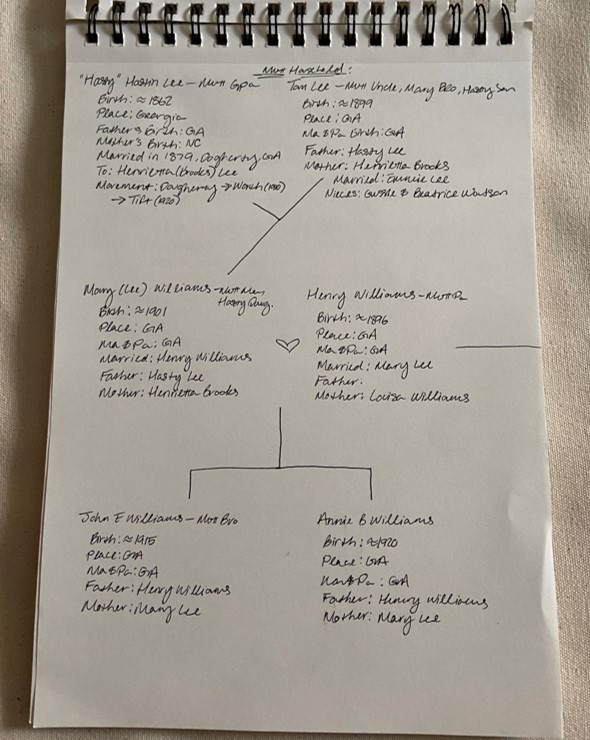 Mutt Household:
"Hasty" Hastin Lee - Mutt Gpa
Birth: ≈ 1862
Place: Georgia
Father's Birth: GA
Mother's Birth: NC
Married in 1879, Dogherty, GA
To: Henrietta (Brooks) Lee
Movement: Dougherty → Worth (1910)
→ Tift (1920)
Tom Lee - Mutt Uncle, Mary Bro, Hasty Son
Birth: ≈ 1899
Place: GA
Ma & Pa Birth: GA
Father: Hasty Lee
Mother: Henrietta Brooks
Married: Eunice Lee
Nieces: & Beatrice Watson
Mary (Lee) Williams - Mutt Mam
Hasty Daug.
Birth: ≈ 1901
Place: GA
Ma & Pa: GA
Married: Henry Williams
Father: Hasty Lee
Mother: Henrietta Brooks
Henry Williams - Mutt Pa
Birth: ≈ 1896
Place: GA
Ma & Pa: GA
Married: Mary Lee
Father:
Mother: Louisa Williams
John E Williams - Mutt Bro
Birth: ≈ 1915
Place: GA
Ma & Pa: GA
Father: Henry Williams
Mother: Mary Lee
Annie B Williams
Birth: ≈ 1920
Place: GA
Ma & Pa: GA
Father: Henry Williams
Mother: Mary Lee